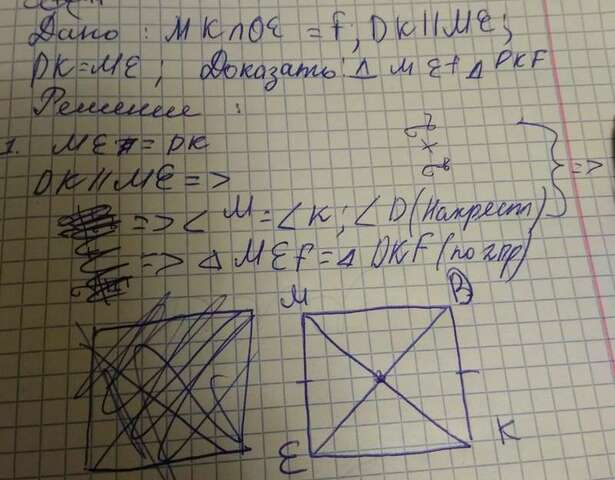 Дано : МК∩DE = f; DK || ME;
DK=ME; Доказать: Δ MEf Δ DKF
Решение :
1. ME = DK
DK || ME =>
=> < M = < K; < D (Накрест) =>
=> Δ MEf = Δ DKF (по 2пр)
M D
E K